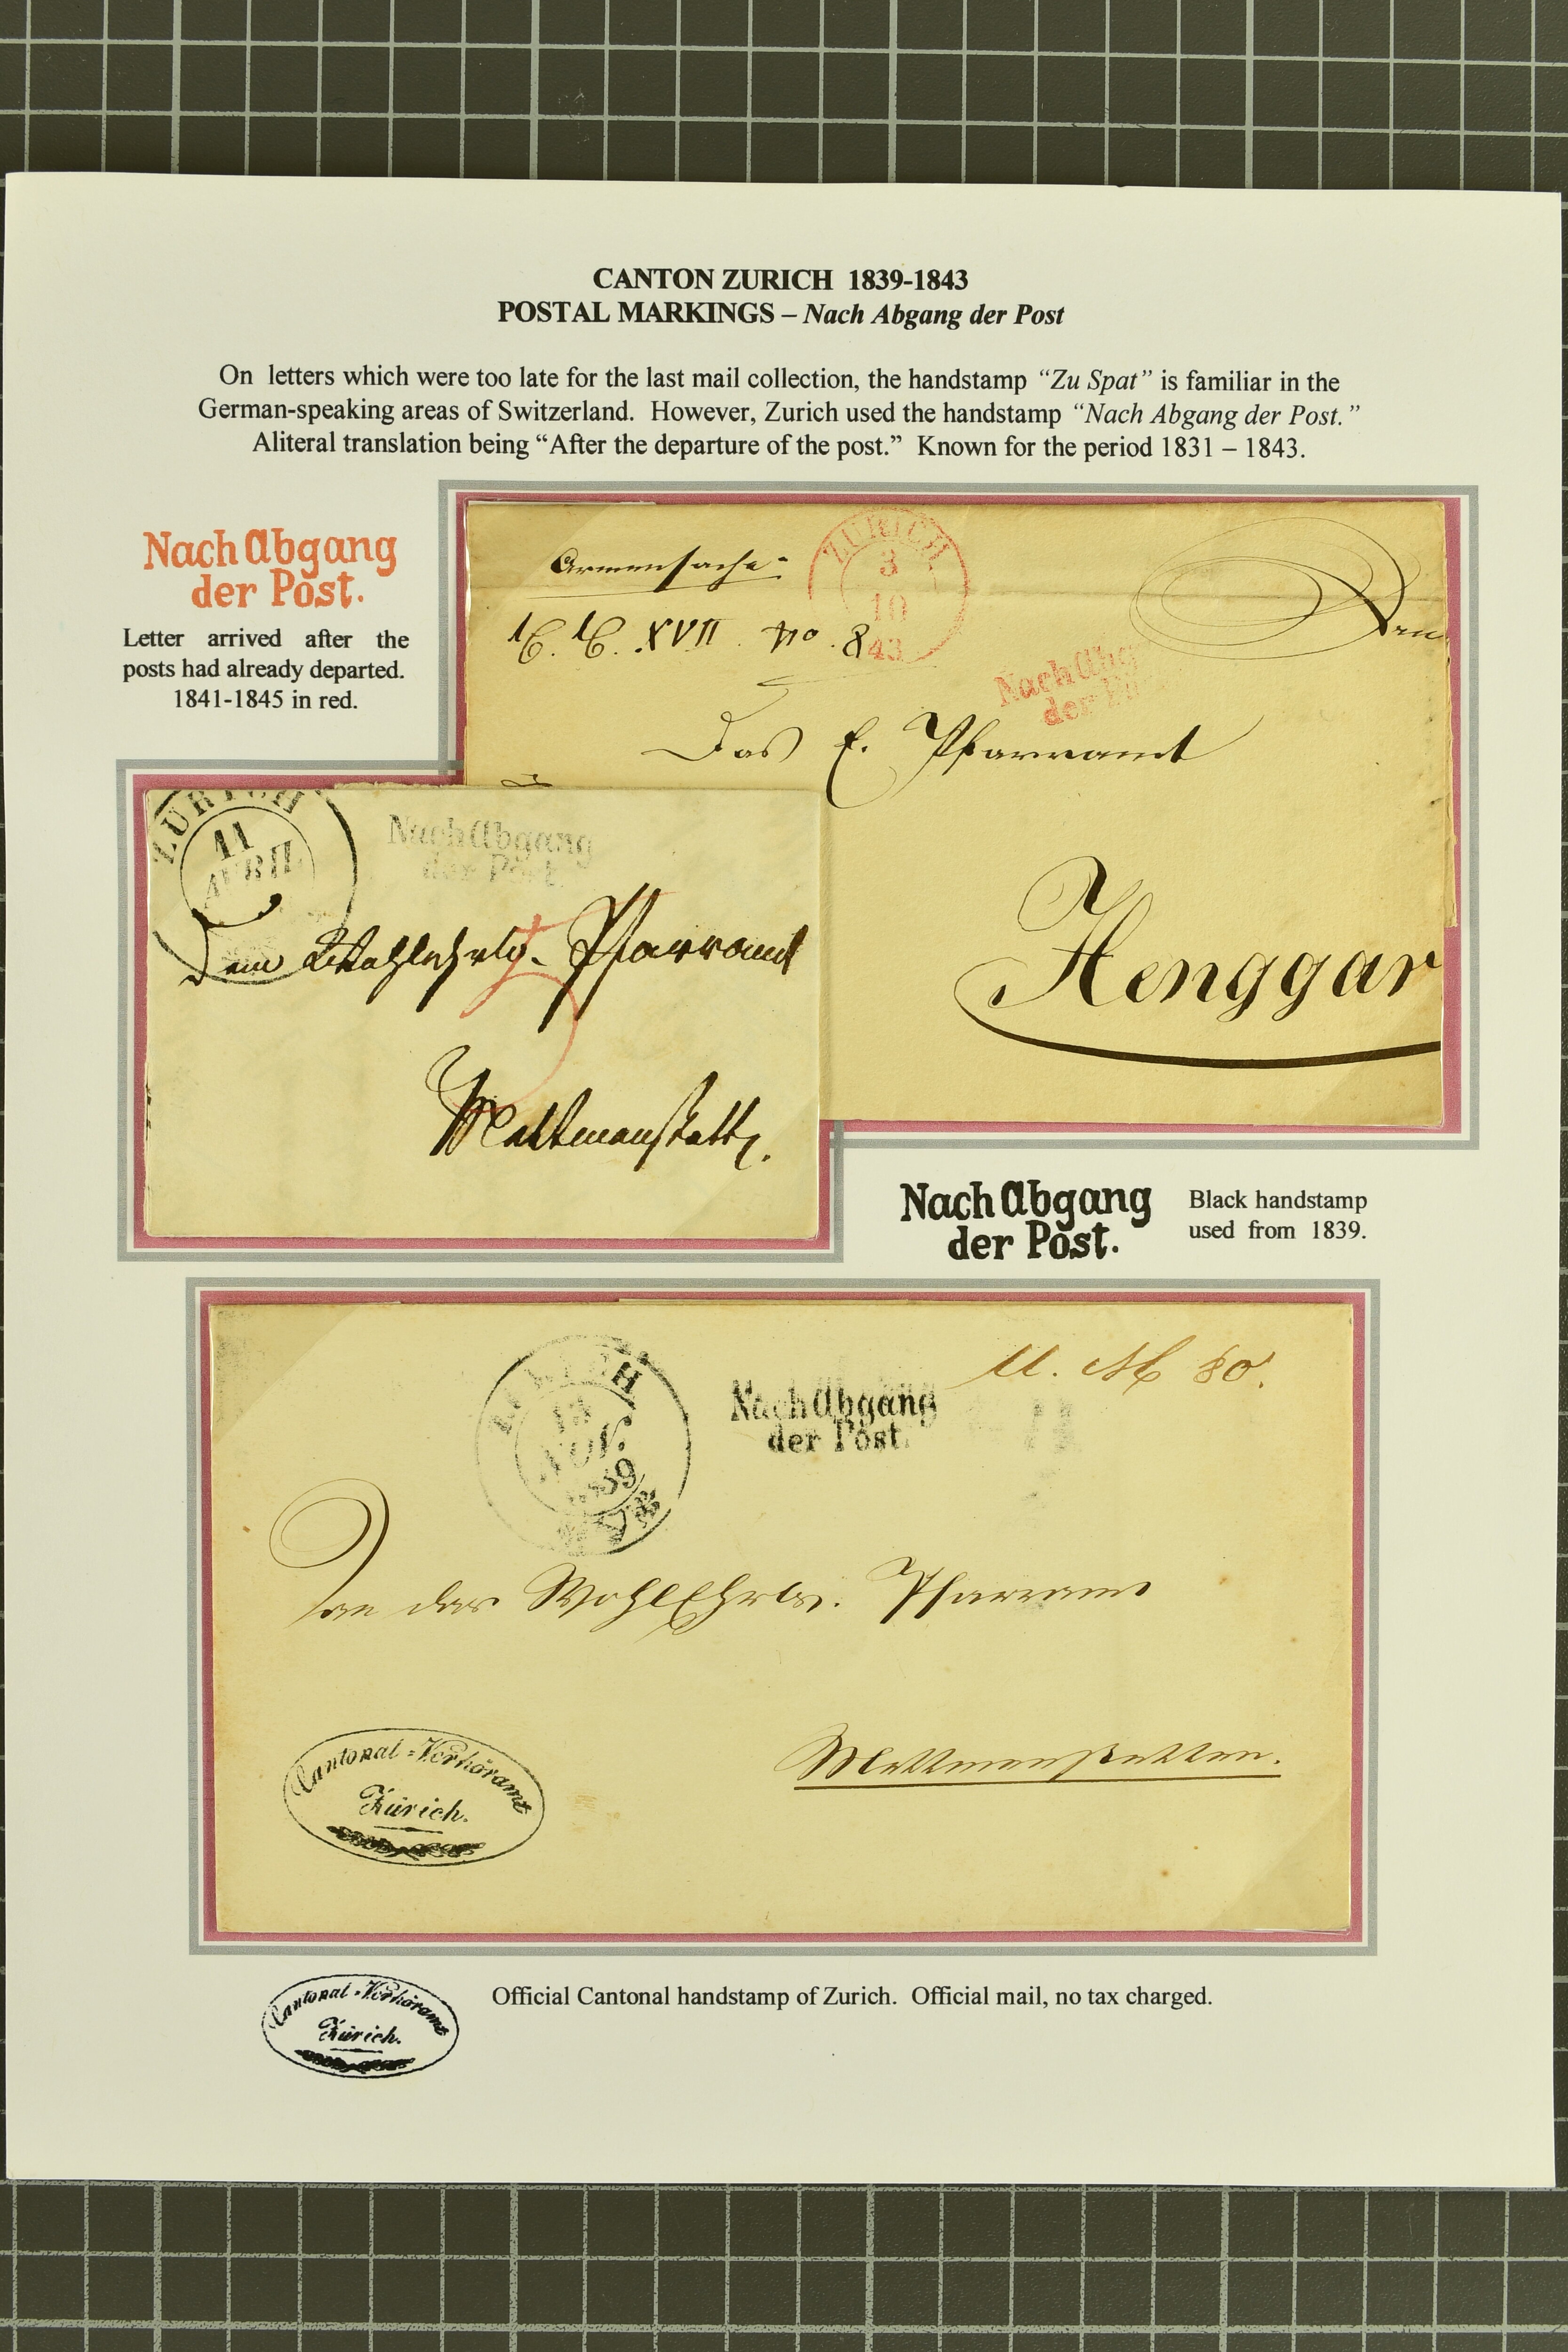 CANTON ZURICH 1839-1843
POSTAL MARKINGS – Nach Abgang der Post
On letters which were too late for the last mail collection, the handstamp “Zu Spat” is familiar in the
German-speaking areas of Switzerland. However, Zurich used the handstamp “Nach Abgang der Post.”
Aliteral translation being “After the departure of the post.” Known for the period 1831 – 1843.
Nach Abgang
der Post.
Letter arrived after the
posts had already departed.
1841-1845 in red.
Armensache
XVII No. 8
ZURICH
3
10
43
Nach Abg
der
Das E. Pfarramt
Henggar
ZURICH
11
AVRIL
Nach Abgang
der Post.
Dem Wohlehrw. Pfarramt
Mettmenstett
Nach Abgang
der Post.
Black handstamp
used from 1839.
13
NOV.
1839
Nach Abgang
der Post.
U. M 80.
An das WohlEhrw. Pfarramt
Mettmenstetten.
Cantonal-Verhöramt
Zürich.
Cantonal-Verhöramt
Zürich.
Official Cantonal handstamp of Zurich. Official mail, no tax charged.